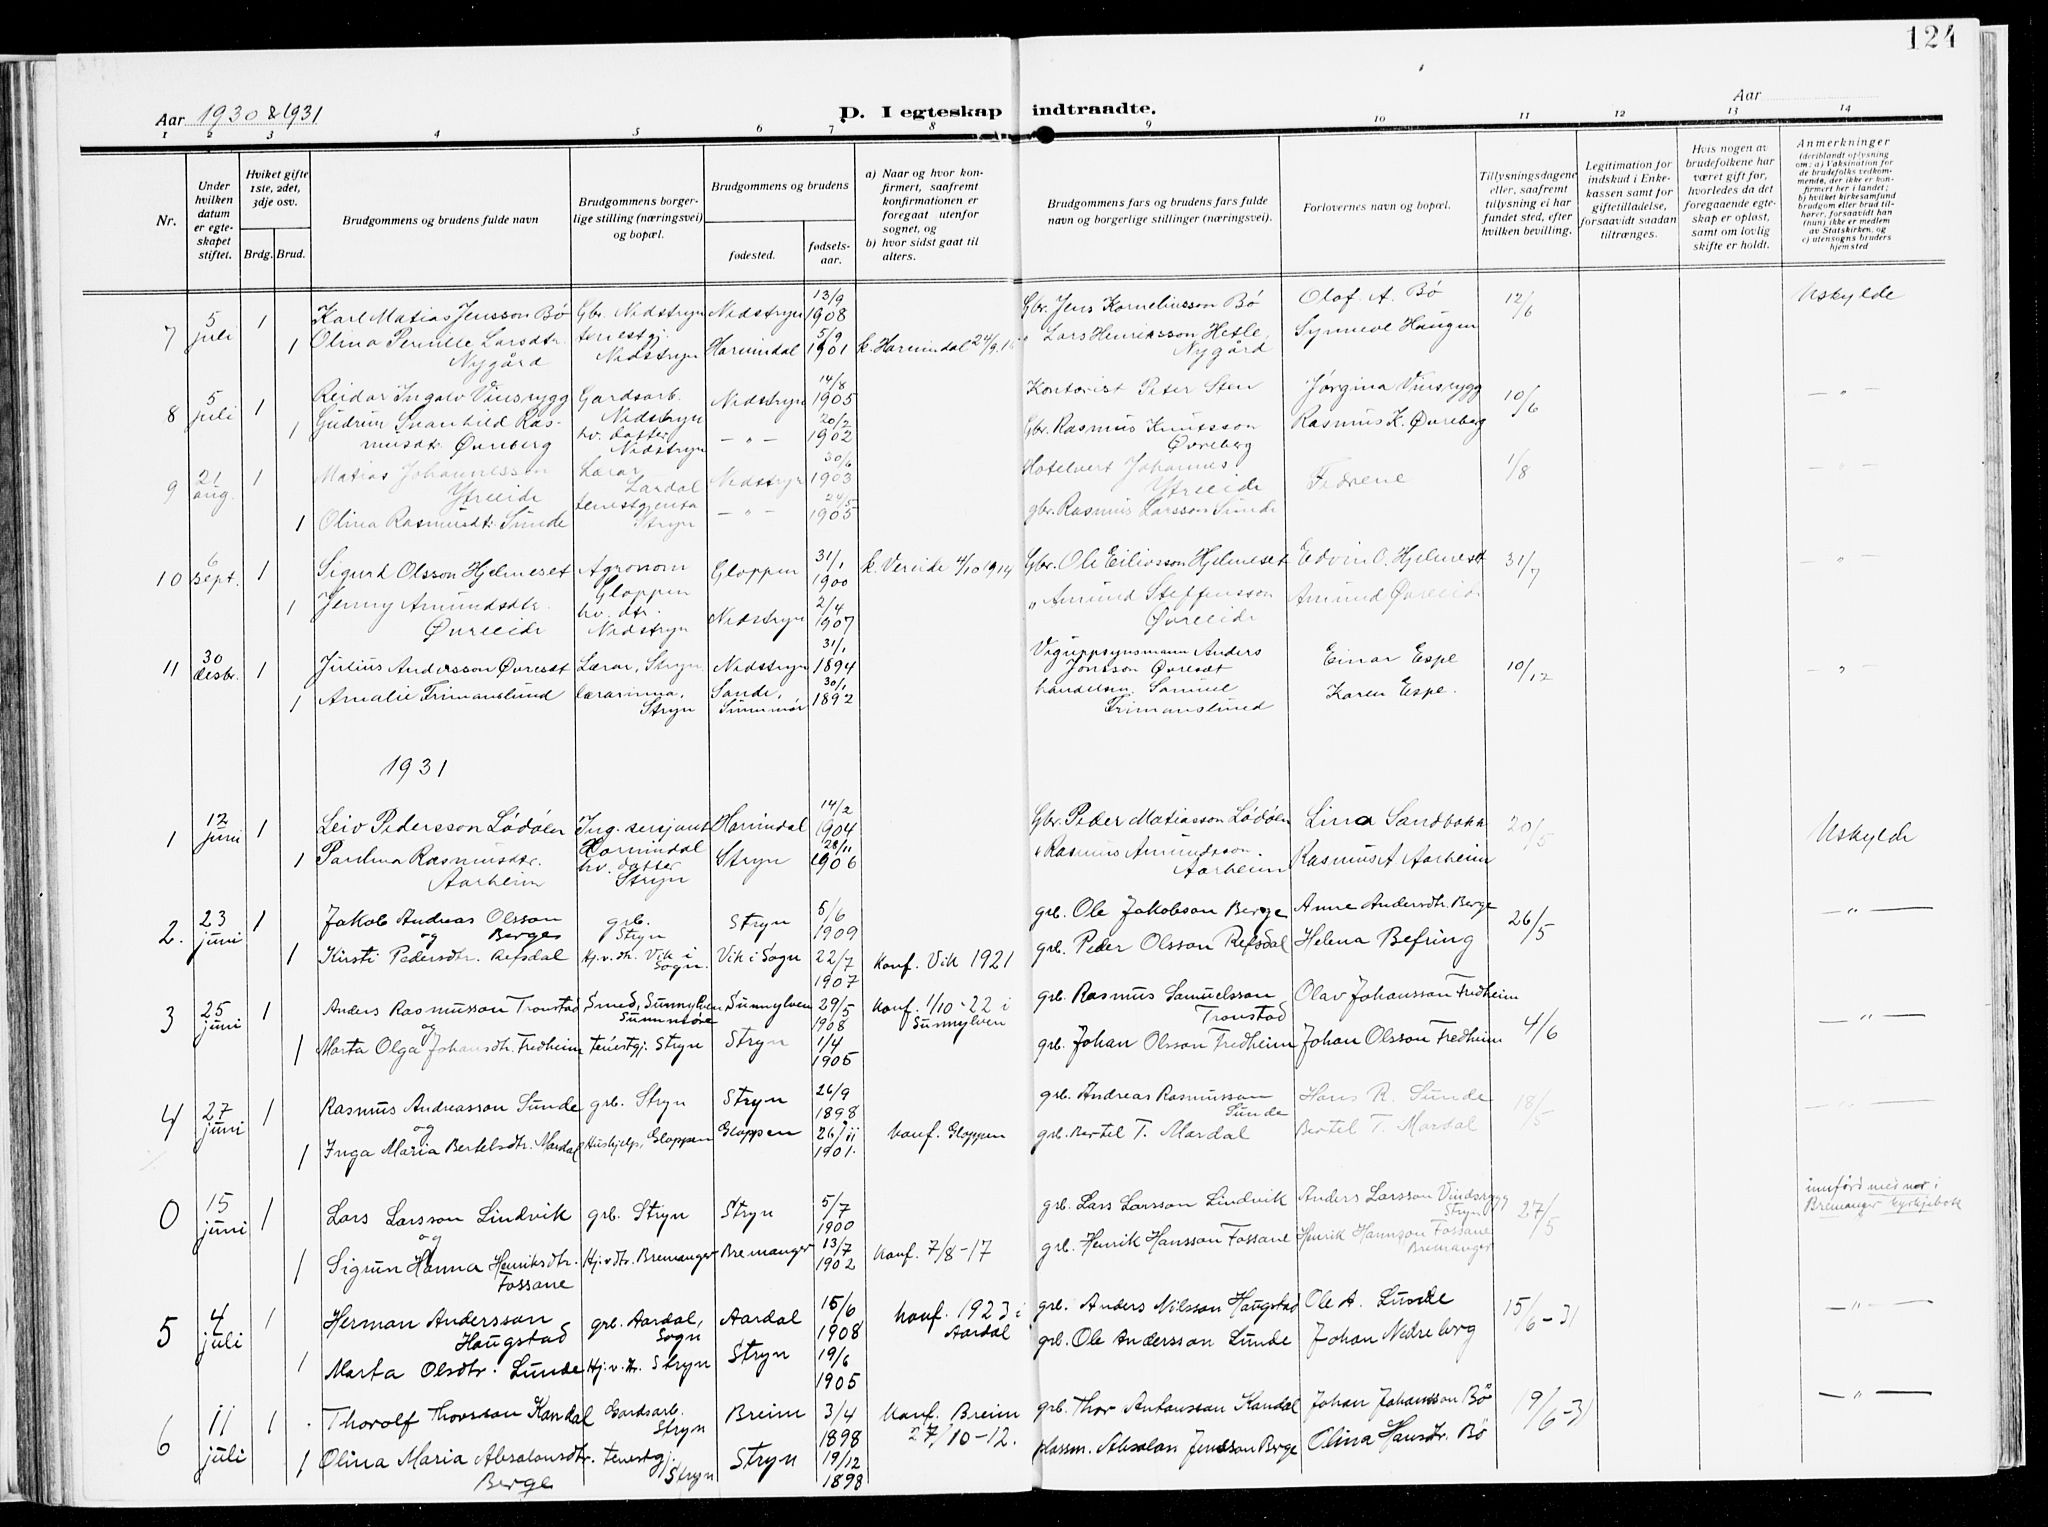 124
Aar 1930 & 1931
D. I egteskap indtraadte.
Aar
1 2 3 4 5 6 7 8 9 10 11 12 13 14
Nr.
Under hvilken datum er egteskapet stiftet.
Hviket gifte 1ste, 2det, 3dje osv.
Brdg. Brud.
Brudgommens og brudens fulde navn
Brudgommens borgerlige stilling (næringsvei) og bopæl.
Brudgommens og brudens
fødested.
fødselsaar.
a) Naar og hvor konfirmert, saafremt konfirmationen er foregaat utenfor sognet, og
b) hvor sidst gaat til alters.
Brudgommens fars og brudens fars fulde navn og borgerlige stillinger (næringsvei).
Forlovernes navn og bopæl.
Tillysningsdagene eller, saafremt tillysning ei har fundet sted, efter hvilken bevilling.
Legitimation for indskud i Enkekassen samt for giftetilladelse, forsaavidt saadan tiltrænges.
Hvis nogen av brudefolkene har været gift før, hvorledes da det foregaaende egteskap er opløst, samt om lovlig skifte er holdt.
Anmerkninger (deriblandt oplysning om: a) Vaksination for de brudefolks vedkommende, der ikke er konfirmert her i landet; b) hvilket kirkesamfund brudgom eller brud tilhører, forsaavidt han (hun) ikke er medlem av Statskirken, og c) utensogns bruders hjemsted
7 5 juli 1 Karl Matias Jensson Bø Gbr. Nedstryn Nedstryn 13/9 1908 Gbr. Jens Korneliusson Bø Olaf A. Bø 12/6 Uskylde
1 Olina Pernille Larsdtr. Nygård tenestgj. Nedstryn Hornindal 5/9 1901 k. Hornindal 24/9 16 " Lars Henriksson Hetle, Nygård Synneve Haugen
8 5 juli 1 Reidar Ingolv Vinsrygg Gardsarb. Nedstryn Nedstryn 14/8 1905 Kontorist Peter Sten Jørgina Vinsrygg 10/6 — " —
1 Gudrun Svanhild Rasmusdtr. Øvreberg hv. datter Nedstryn — " — 20/2 1902 Gbr. Rasmus Knutsson Øvreberg Rasmus K. Øvreberg
9 21 aug. 1 Matias Johannesson Ytreeide Lærar Lardal Nedstryn 30/6 1903 Hotelvert Johannes Ytreeide Fedrene 1/8 — " —
1 Olina Rasmusdtr. Sunde tenestgjenta Stryn — " — 24/5 1905 gbr. Rasmus Larsson Sunde
10 6 sept. 1 Sigurd Olsson Hjelmeset Agronom Gloppen Gloppen 31/1 1900 k. Vereide 4/10 1914 Gbr. Ole Eilivsson Hjelmeset Edvin O. Hjelmeset 31/7 — " —
1 Jenny Amundsdtr. Øvreeide hv. dtr. Nedstryn Nedstryn 2/4 1907 " Amund Steffensson Øvreeide Amund Øvreeide
11 30 desbr. 1 Julius Andersson Øvreset Lærar, Stryn Nedstryn 31/1 1894 Viguppsynsmann Anders Jonsson Øvreset Einar Espe 10/12 "
1 Amalie Frimanslund lærarinna, Stryn Sande, Sunnmør 30/1 1892 handelsm. Samuel Frimanslund Karen Espe.
1931
1 12 juni 1 Leiv Pedersson Lødøen Ing. sersjant Hornindal Hornindal 14/2 1904 Gbr. Peder Matiasson Lødøen Lina Sandbakk 20/5 Uskylde
1 Paulina Rasmusdtr. Aarheim hv. datter Stryn Stryn 28/11 1906 " Rasmus Amundsson Aarheim Rasmus A Aarheim
2. 23 juni 1 Jakob Andreas Olsson Berge grb. Stryn Stryn 5/6 1909 grb. Ole Jakobson Berge Anne Andersdtr. Berge 26/5 — " —
og
1 Kirsti Pedersdtr. Refsdal Hj.v.dtr. Vik i Sogn. Vik i Sogn 22/7 1907 Konf. Vik 1921 grb. Peder Olsson Refsdal Helena Befring
3 25 juni 1 Anders Rasmusson Tronstad Smed, Sunnylven Sunnmøre Sunnylven 29/5 1908 Konf. 1/10-22 i Sunnylven grb. Rasmus Samuelsson Tronstad Olav Johansson Fredheim 4/6 — " —
og
1 Marta Olga Johansdtr. Fredheim tenestgj. Stryn Stryn 1/4 1905 grb. Johan Olsson Fredheim Johan Olsson Fredheim
4 27 juni 1 Rasmus Andreasson Sunde grb. Stryn Stryn 26/9 1898 grb. Andreas Rasmusson Sunde Hans R. Sunde 18/5 — " —
og
1 Inga Maria Bertelsdtr. Mardal Hushjelp, Gloppen Gloppen 26/11 1901. Konf. Gloppen grb. Bertel T. Mardal Bertel T. Mardal
0 15 juni 1 Lars Larsson Lindvik grb. Stryn Stryn 5/7 1900 grb. Lars Larsson Lindvik Anders Larsson Vindsrygg Stryn 27/5 innførd med nr i Bremanger kyrkjebok
og
1 Sigrun Hanna Henriksdtr. Fossane Hj.v.dtr. Bremanger Bremanger 13/7 1902 Konf. 7/8-17 grb. Henrik Hansson Fossane Henrik Hansson Fossane Bremanger
5 4 juli 1 Herman Andersson Haugstad grb. Aardal, Sogn Aardal 15/6 1908 Konf. 1923 i Aardal grb. Anders Nilsson Haugstad Ole A. Sunde 15/6-31 — " —
1 Marta Olsdtr. Sunde Hj.v.dtr. Stryn Stryn 19/6 1905 grb. Ole Andersson Sunde Johan Nedreberg
6 11 juli 1 Thorolf Thorsson Kandal Gardsarb. Stryn Breim 3/4 1898 Konf. Breim 27/10-12. grb. Thor Antonsson Kandal Johan Johansson Bø 19/6-31 — " —
1 Olina Maria Absalonsdtr. Berge tenestgj. Stryn Stryn 19/12 1898 plassm. Absalon Jensson Berge Olina Hansdtr. Bø